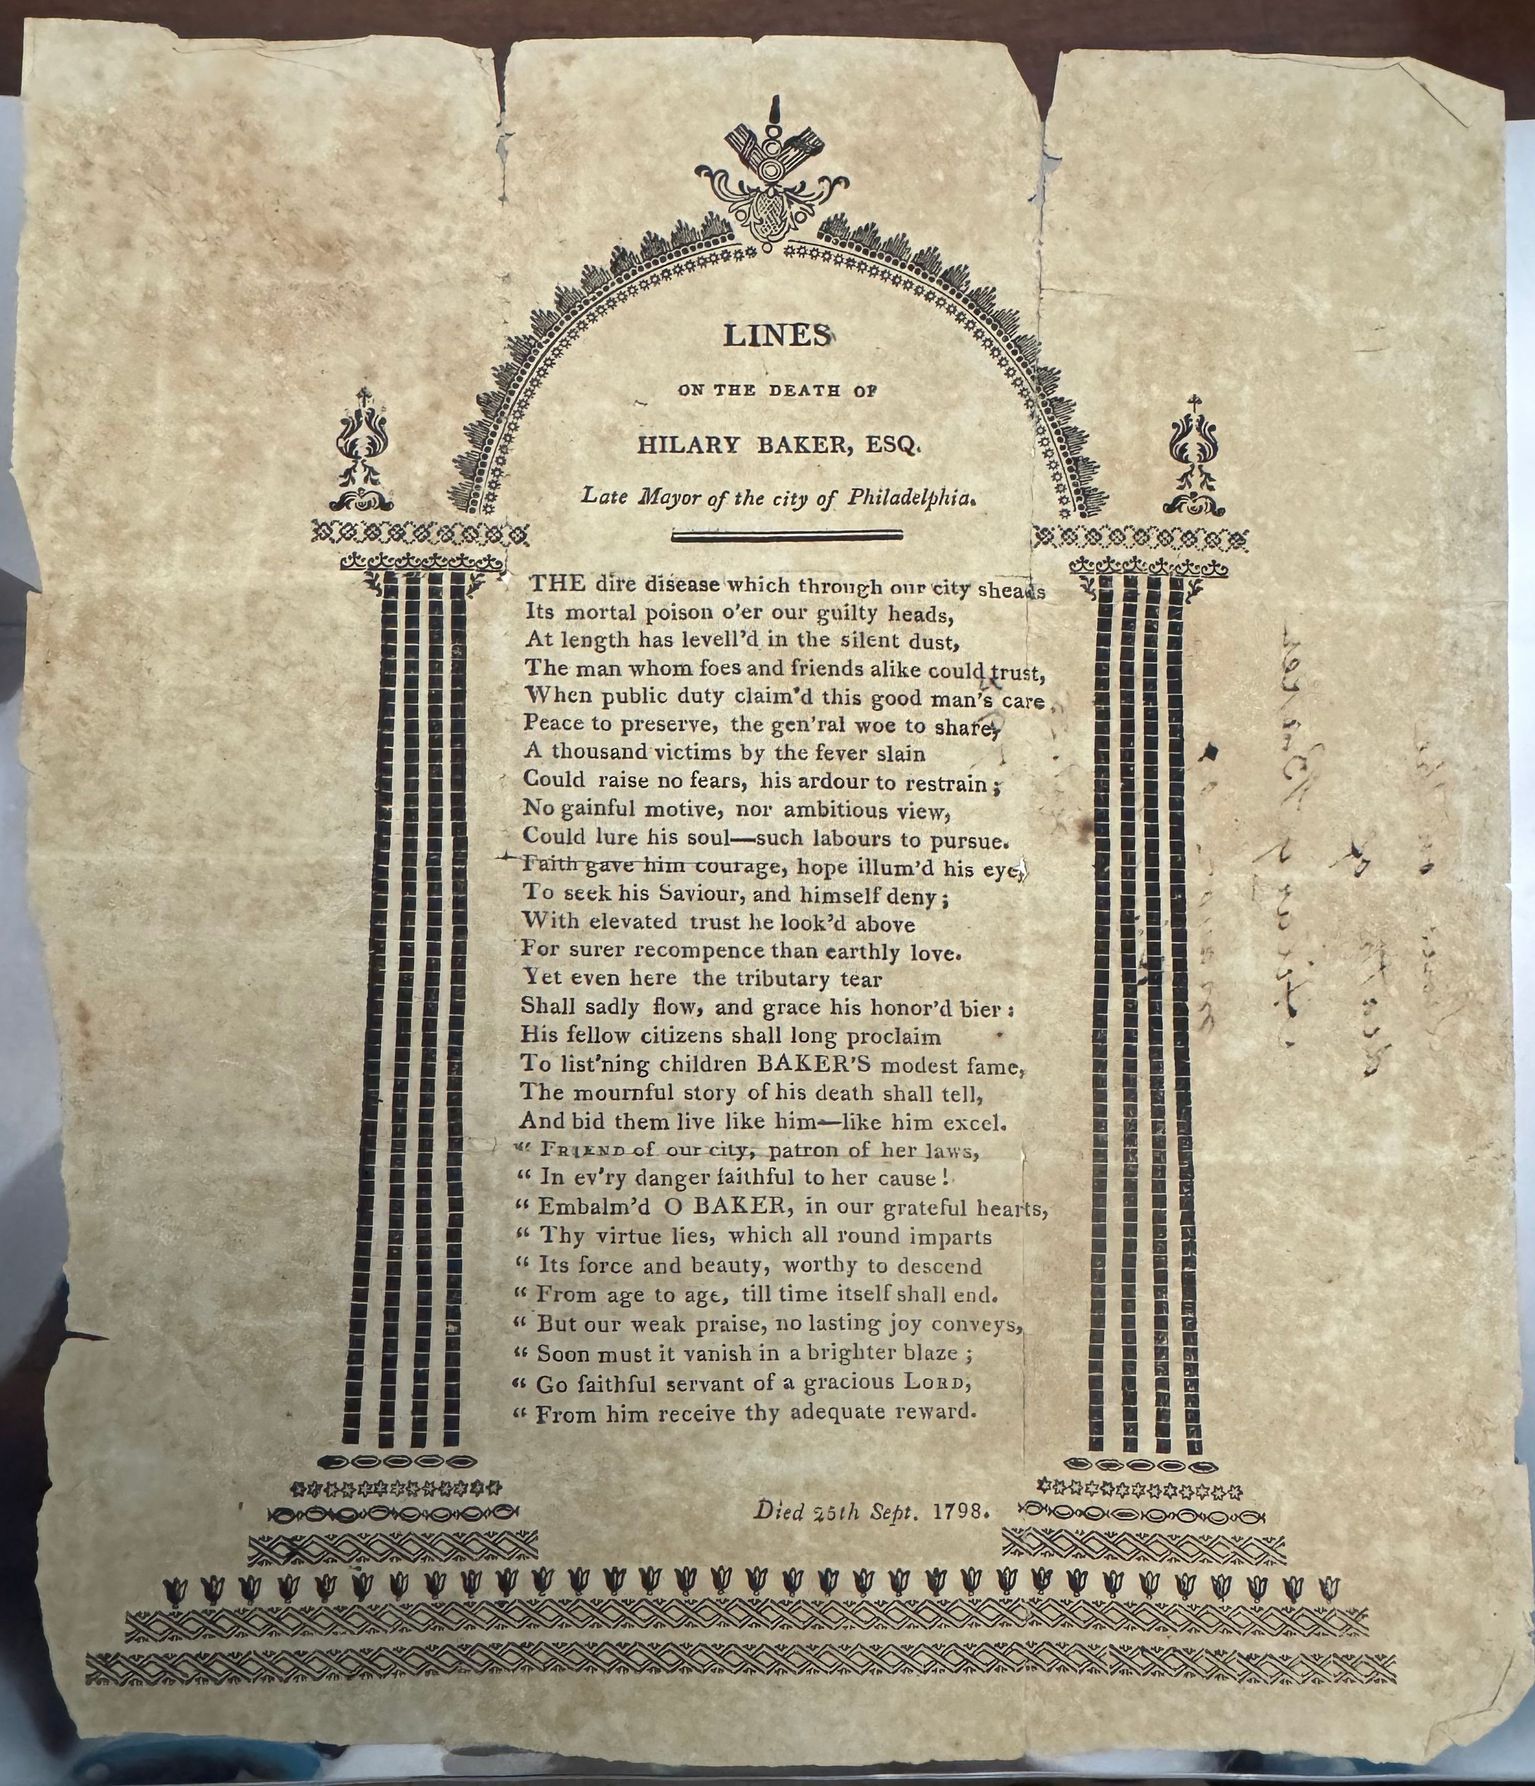 LINES
ON THE DEATH OF
HILARY BAKER, ESQ.
Late Mayor of the city of Philadelphia.
THE dire disease which through our city sheads
Its mortal poison o'er our guilty heads,
At length has levell'd in the silent dust,
The man whom foes and friends alike could trust,
When public duty claim'd this good man's care,
Peace to preserve, the gen'ral woe to share,
A thousand victims by the fever slain
Could raise no fears, his ardour to restrain;
No gainful motive, nor ambitious view,
Could lure his soul—such labours to pursue.
Faith gave him courage, hope illum'd his eye,
To seek his Saviour, and himself deny;
With elevated trust he look'd above
For surer recompence than earthly love.
Yet even here the tributary tear
Shall sadly flow, and grace his honor'd bier:
His fellow citizens shall long proclaim
To list'ning children BAKER'S modest fame,
The mournful story of his death shall tell,
And bid them live like him—like him excel.
“ FRIEND of our city, patron of her laws,
“ In ev'ry danger faithful to her cause!
“ Embalm'd O BAKER, in our grateful hearts,
“ Thy virtue lies, which all round imparts
“ Its force and beauty, worthy to descend
“ From age to age, till time itself shall end.
“ But our weak praise, no lasting joy conveys,
“ Soon must it vanish in a brighter blaze;
“ Go faithful servant of a gracious LORD,
“ From him receive thy adequate reward.
Died 25th Sept. 1798.